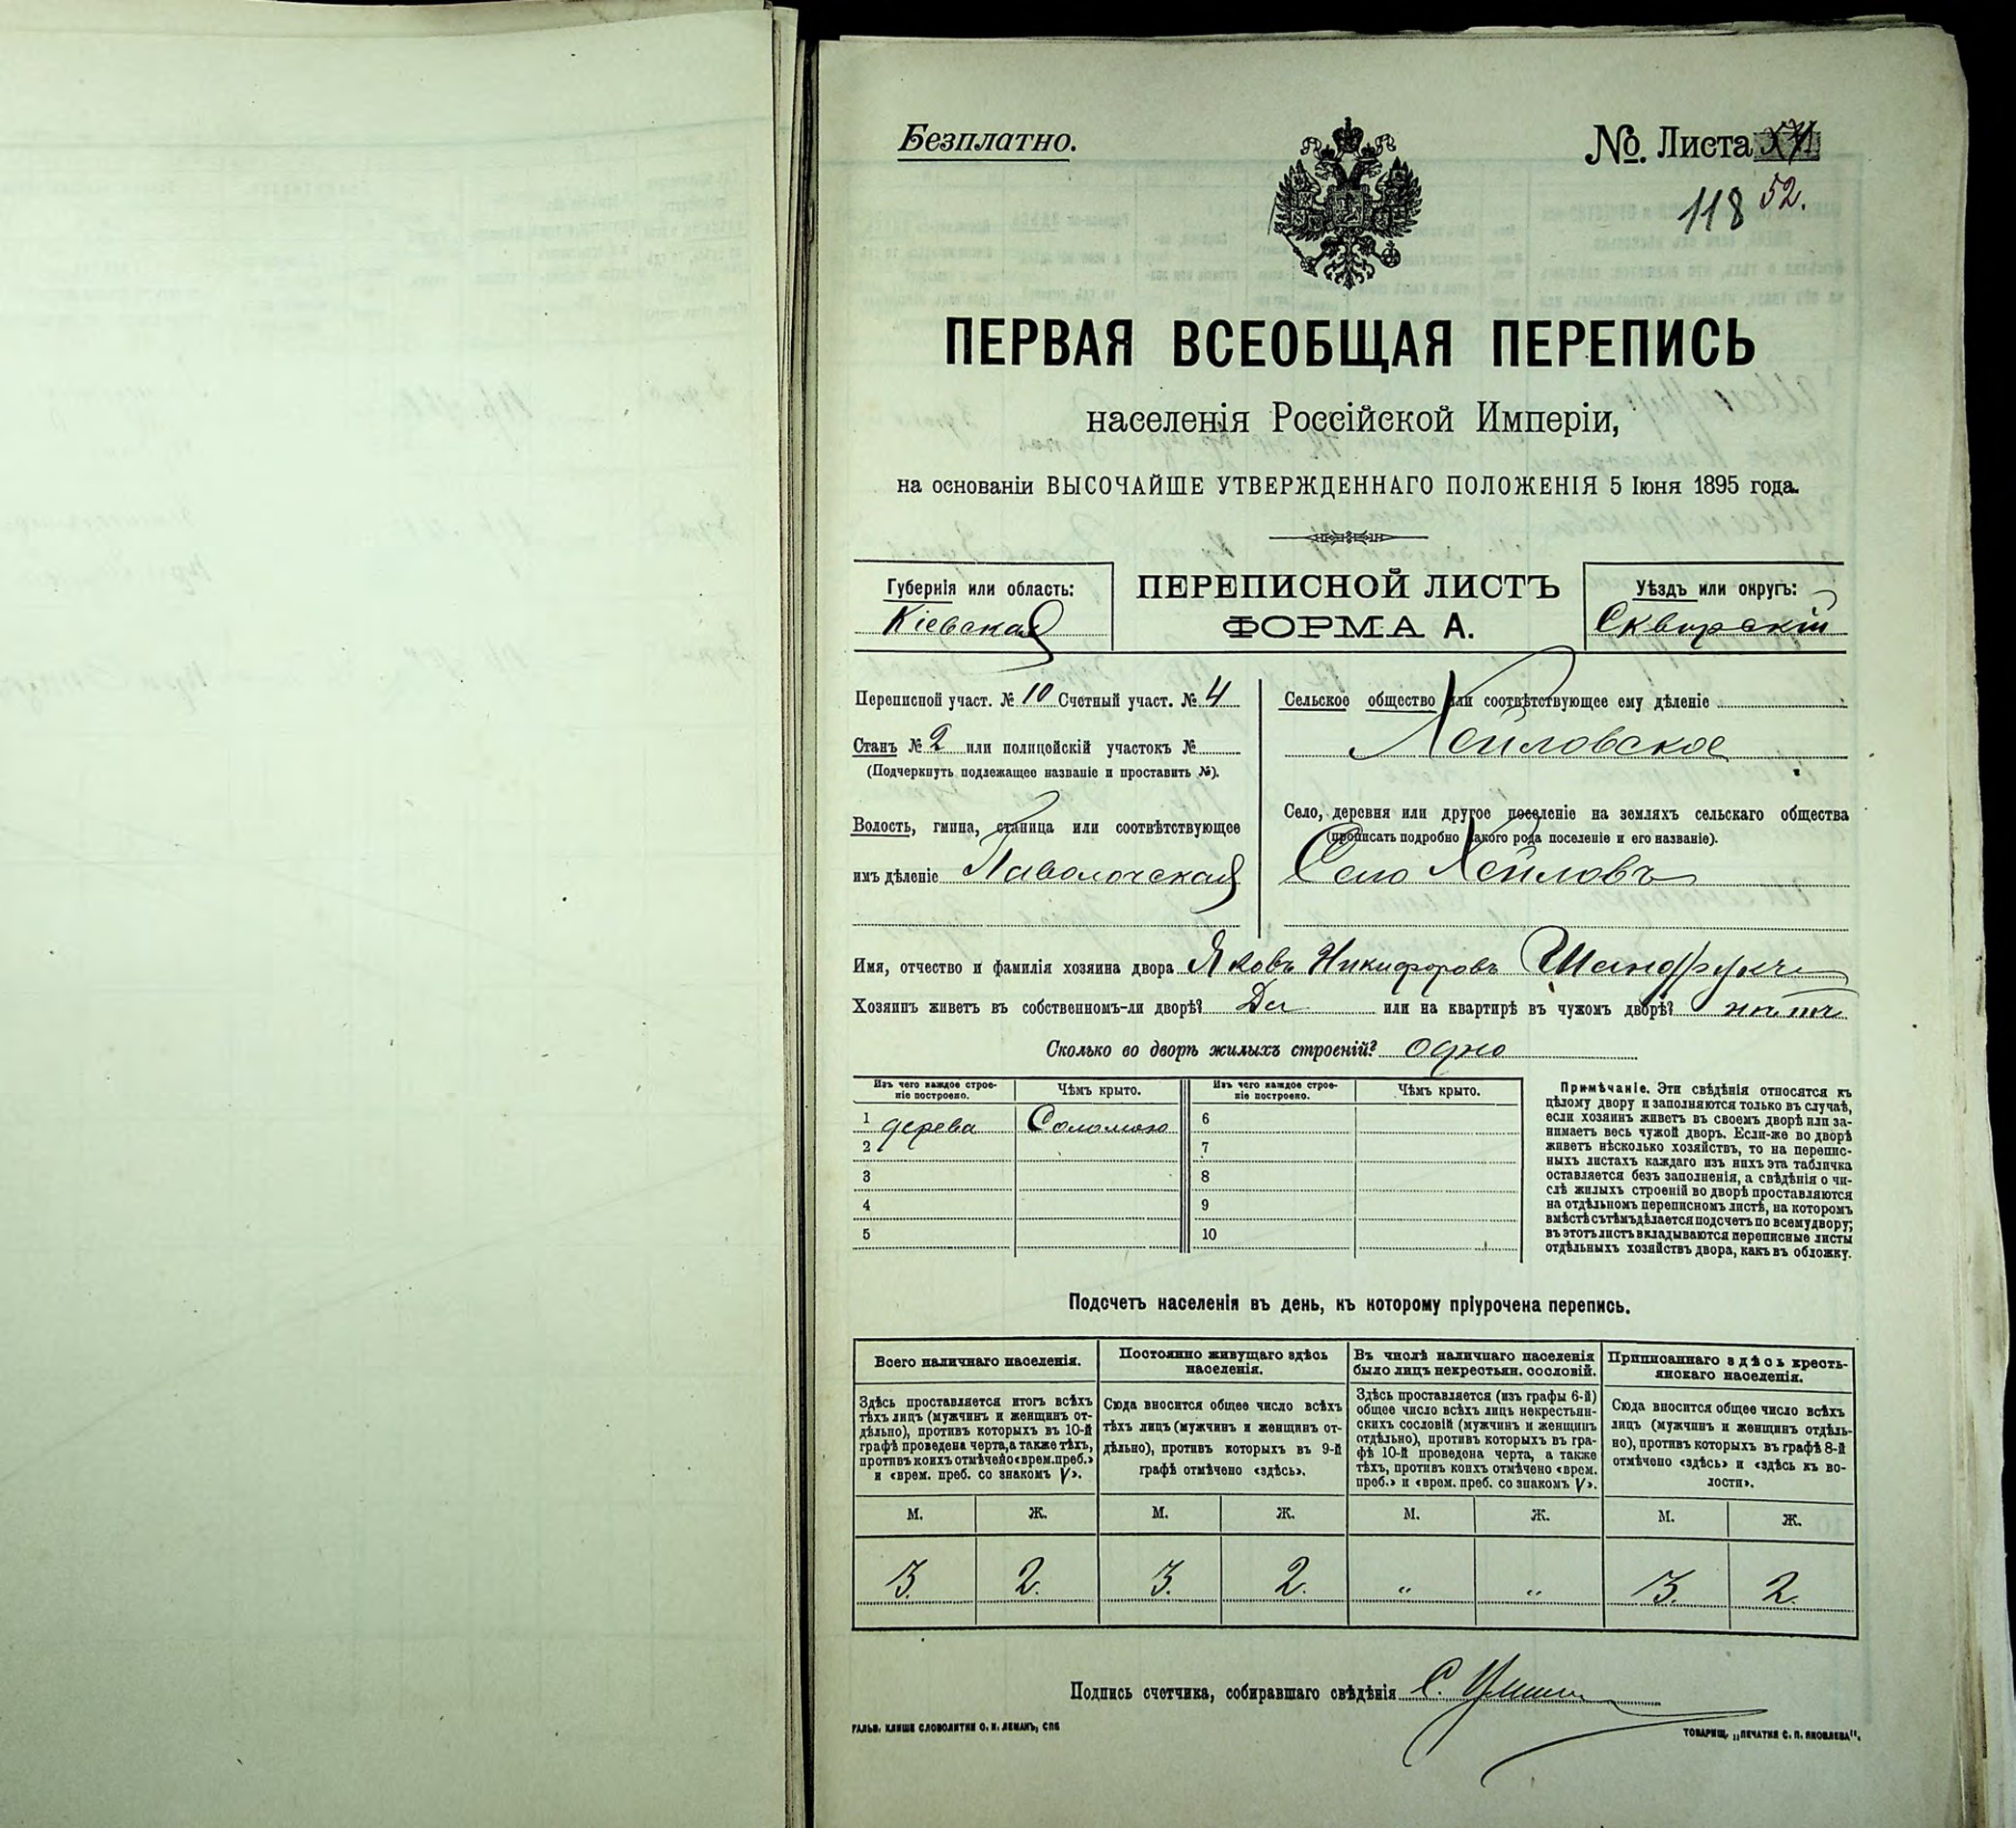 Безплатно.
№. Листа
118 52.
ПЕРВАЯ ВСЕОБЩАЯ ПЕРЕПИСЬ
населенія Россійской Имперіи,
на основаніи ВЫСОЧАЙШЕ УТВЕРЖДЕННАГО ПОЛОЖЕНІЯ 5 Іюня 1895 года.
Губернія или область:
Кіевская
ПЕРЕПИСНОЙ ЛИСТЪ
ФОРМА А.
Уѣздъ или округъ:
Сквирскій
Переписной участ. № 10 Счетный участ. № 4
Станъ № 2 или полицейскій участокъ №
(Подчеркнуть подлежащее названіе и проставить №).
Волость, гмина, станица или соотвѣтствующее
имъ дѣленіе Паволочская
Сельское общество или соотвѣтствующее ему дѣленіе
Хейловское
Село, деревня или другое поселеніе на земляхъ сельскаго общества
(прописать подробно какого рода поселеніе и его названіе).
Село Хейловъ
Имя, отчество и фамилія хозяина двора Яковъ Никифоровъ Шандрукъ
Хозяинъ живетъ въ собственномъ-ли дворѣ? Да или на квартирѣ въ чужомъ дворѣ? нѣтъ
Сколько во дворѣ жилыхъ строеній? одно
Изъ чего каждое строе-
ніе построено.
Чѣмъ крыто.
Изъ чего каждое строе-
ніе построено.
Чѣмъ крыто.
1 дерева Соломою 6
2 7
3 8
4 9
5 10
Примѣчаніе. Эти свѣдѣнія относятся къ
цѣлому двору и заполняются только въ случаѣ,
если хозяинъ живетъ въ своемъ дворѣ или за-
нимаетъ весь чужой дворъ. Если-же во дворѣ
живетъ нѣсколько хозяйствъ, то на перепис-
ныхъ листахъ каждаго изъ нихъ эта табличка
оставляется безъ заполненія, а свѣдѣнія о чи-
слѣ жилыхъ строеній во дворѣ проставляются
на отдѣльномъ переписномъ листѣ, на которомъ
вмѣстѣ съ тѣмъ дѣлается подсчетъ по всему двору;
въ этотъ листъ вкладываются переписные листы
отдѣльныхъ хозяйствъ двора, какъ въ обложку.
Подсчетъ населенія въ день, къ которому пріурочена перепись.
Всего наличнаго населенія.
Здѣсь проставляется итогъ всѣхъ
тѣхъ лицъ (мужчинъ и женщинъ от-
дѣльно), противъ которыхъ въ 10-й
графѣ проведена черта, а также тѣхъ,
противъ коихъ отмѣчено «врем. преб.»
и «врем. преб. со знакомъ V».
Постоянно живущаго здѣсь
населенія.
Сюда вносится общее число всѣхъ
тѣхъ лицъ (мужчинъ и женщинъ от-
дѣльно), противъ которыхъ въ 9-й
графѣ отмѣчено «здѣсь».
Въ числѣ наличнаго населенія
было лицъ некрестьян. сословій.
Здѣсь проставляется (изъ графы 6-й)
общее число всѣхъ лицъ некрестьян-
скихъ сословій (мужчинъ и женщинъ
отдѣльно), противъ которыхъ въ гра-
фѣ 10-й проведена черта, а также
тѣхъ, противъ коихъ отмѣчено «врем.
преб.» и «врем. преб. со знакомъ V».
Приписаннаго здѣсь кресть-
янскаго населенія.
Сюда вносится общее число всѣхъ
лицъ (мужчинъ и женщинъ отдѣль-
но), противъ которыхъ въ графѣ 8-й
отмѣчено «здѣсь» и «здѣсь къ во-
лости».
М. Ж. М. Ж. М. Ж. М. Ж.
3. 2. 3. 2. " " 3. 2.
Подпись счетчика, собиравшаго свѣдѣнія С.
ГАЛЬВ. КЛИШЕ СЛОВОЛИТНИ О. И. ЛЕМАНЪ, СПБ
ТОВАРИЩ. „ПЕЧАТНЯ С. П. ЯКОВЛЕВА".